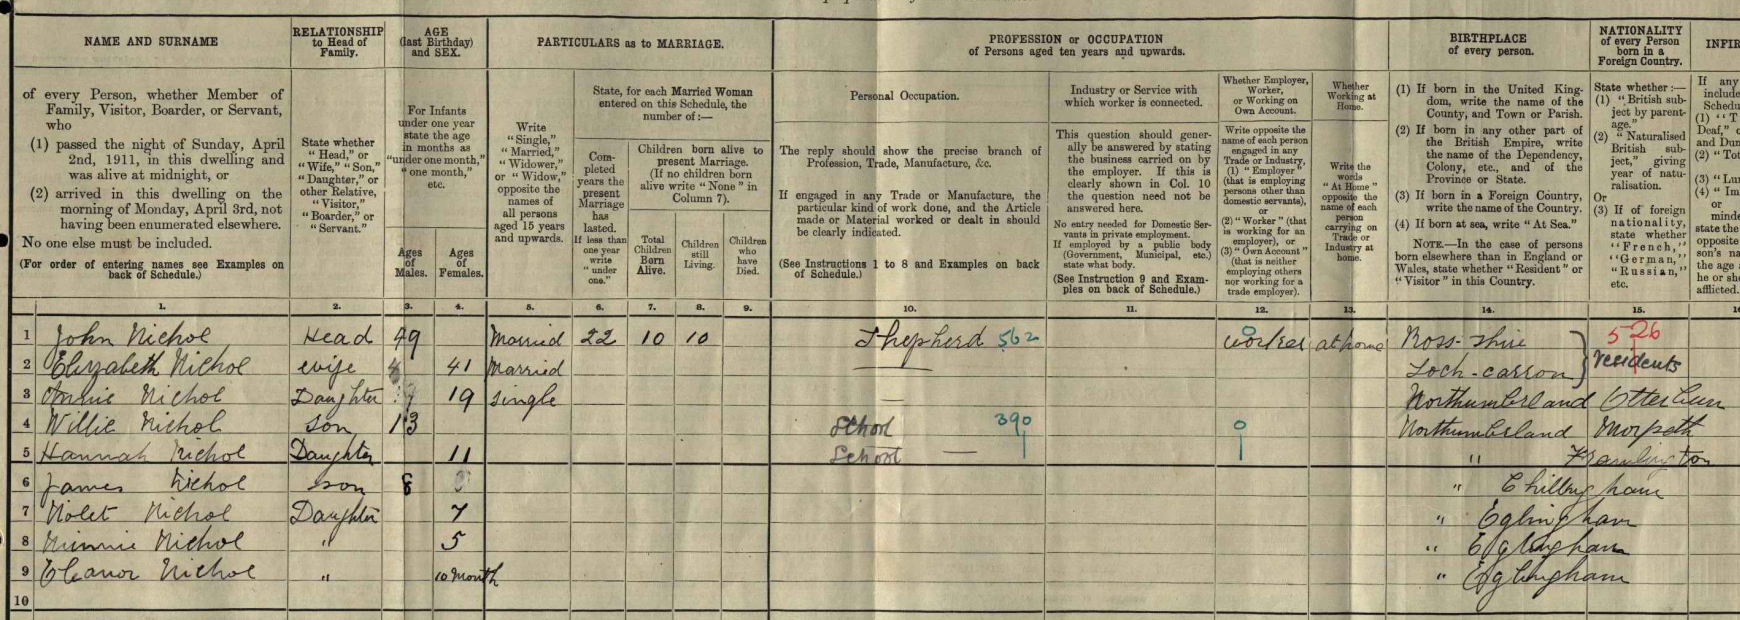 NAME AND SURNAME
of every Person, whether Member of
Family, Visitor, Boarder, or Servant,
who
(1) passed the night of Sunday, April
2nd, 1911, in this dwelling and
was alive at midnight, or
(2) arrived in this dwelling on the
morning of Monday, April 3rd, not
having been enumerated elsewhere.
No one else must be included.
(For order of entering names see Examples on
back of Schedule.)
RELATIONSHIP
to Head of
Family.
State whether
"Head," or
"Wife," "Son,"
"Daughter," or
other Relative,
"Visitor,"
"Boarder," or
"Servant."
AGE
(last Birthday)
and SEX.
For Infants
under one year
state the age
in months as
"under one month,"
"one month,"
etc.
Ages
of
Males.
Ages
of
Females.
PARTICULARS as to MARRIAGE.
Write
"Single,"
"Married,"
"Widower,"
or "Widow,"
opposite the
names of
all persons
aged 15 years
and upwards.
State, for each Married Woman
entered on this Schedule, the
number of:—
Com-
pleted
years the
present
Marriage
has
lasted.
If less than
one year
write
"under
one."
Children born alive to
present Marriage.
(If no children born
alive write "None" in
Column 7).
Total
Children
Born
Alive.
Children
still
Living.
Children
who
have
Died.
PROFESSION or OCCUPATION
of Persons aged ten years and upwards.
Personal Occupation.
The reply should show the precise branch of
Profession, Trade, Manufacture, &c.
If engaged in any Trade or Manufacture, the
particular kind of work done, and the Article
made or Material worked or dealt in should
be clearly indicated.
(See Instructions 1 to 8 and Examples on back
of Schedule.)
Industry or Service with
which worker is connected.
This question should gener-
ally be answered by stating
the business carried on by
the employer. If this is
clearly shown in Col. 10
the question need not be
answered here.
No entry needed for Domestic Ser-
vants in private employment.
If employed by a public body
(Government, Municipal, etc.)
state what body.
(See Instruction 9 and Exam-
ples on back of Schedule.)
Whether Employer,
Worker,
or Working on
Own Account.
Write opposite the
name of each person
engaged in any
Trade or Industry,
(1) "Employer"
(that is employing
persons other than
domestic servants),
or
(2) "Worker" (that
is working for an
employer), or
(3) "Own Account"
(that is neither
employing others
nor working for a
trade employer).
Whether
Working at
Home.
Write the
words
"At Home"
opposite the
name of each
person
carrying on
Trade or
Industry at
home.
BIRTHPLACE
of every person.
(1) If born in the United King-
dom, write the name of the
County, and Town or Parish.
(2) If born in any other part of
the British Empire, write
the name of the Dependency,
Colony, etc., and of the
Province or State.
(3) If born in a Foreign Country,
write the name of the Country.
(4) If born at sea, write "At Sea."
NOTE.—In the case of persons
born elsewhere than in England or
Wales, state whether "Resident" or
"Visitor" in this Country.
NATIONALITY
of every Person
born in a
Foreign Country.
State whether :—
(1) "British sub-
ject by parent-
age."
(2) "Naturalised
British sub-
ject," giving
year of natu-
ralisation.
Or
(3) If of foreign
nationality,
state whether
"French,"
"German,"
"Russian,"
etc.
INFIR
If any
include
Schedu
(1) "T
Deaf," o
and Dum
(2) "Tot
(3) "Lun
(4) "Im
or
minde
state the
opposite
son's na
the age a
he or sh
afflicted.
1. 2. 3. 4. 5. 6. 7. 8. 9. 10. 11. 12. 13. 14. 15.
1 John Nichol Head 49 Married 22 10 10 Shepherd 562 worker at home Ross-shire 526
2 Elizabeth Nichol wife 41 Married Loch-carron residents
3 Annie Nichol Daughter 19 single — Northumberland Otterburn
4 Willie Nichol son 13 School 390 Northumberland Morpeth
5 Hannah Nichol Daughter 11 School — " Framlington
6 James Nichol son 8 " Chillingham
7 Violet Nichol Daughter 7 " Eglingham
8 Minnie Nichol " 5 " Eglingham
9 Eleanor Nichol " 10 month " Eglingham
10